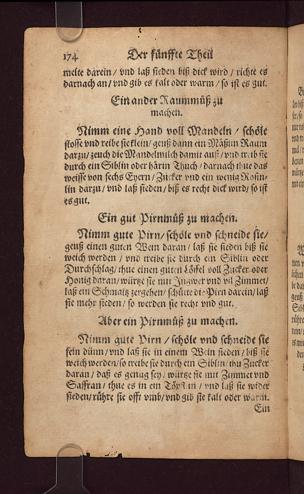 174 Der fünffte Theil
melte darein / vnd laß sieden biß dick wird / richte es
darnach an / vnd gib es kalt oder warm / so ist es gut.
Ein ander Raummüß zu
machen.
Nimm eine Hand voll Mandeln / schöle
stosse vnd reibe sie klein / geuß dann ein Mäßlin Raum
darzu / zeuch die Mandelmilch damit auß / vnd treib sie
durch ein Siblin oder härin Thuch / darnach thue das
weisse von sechs Eyern / Zucker vnd ein wenig Rosin-
lin darzu / vnd laß sieden / biß es recht dick wird / so ist
es gut.
Ein gut Pirnmüß zu machen.
Nimm gute Pirn / schöle vnd schneide sie /
geuß einen guten Wein daran / laß sie sieden biß sie
weich werden / vnd treibe sie durch ein Siblin oder
Durchschlag / thue einen guten Löffel voll Zucker oder
Honig daran / würtze sie mit Ingwer vnd vil Zimmet /
laß ein Schmaltz zergehen / schütte die Piren darein / laß
sie mehr sieden / so werden sie recht vnd gut.
Aber ein Pirnmüß zu machen.
Nimm gute Pirn / schöle vnd schneide sie
fein dünn / vnd laß sie in einem Wein sieden / biß sie
weich werden / so treibe sie durch ein Siblin / thu Zucker
daran / daß es genug sey / würtze sie mit Zimmet vnd
Saffran / thue es in ein Töpflin / vnd laß sie wider
sieden / rühre sie offt vmb / vnd gib sie kalt oder warm.
Ein